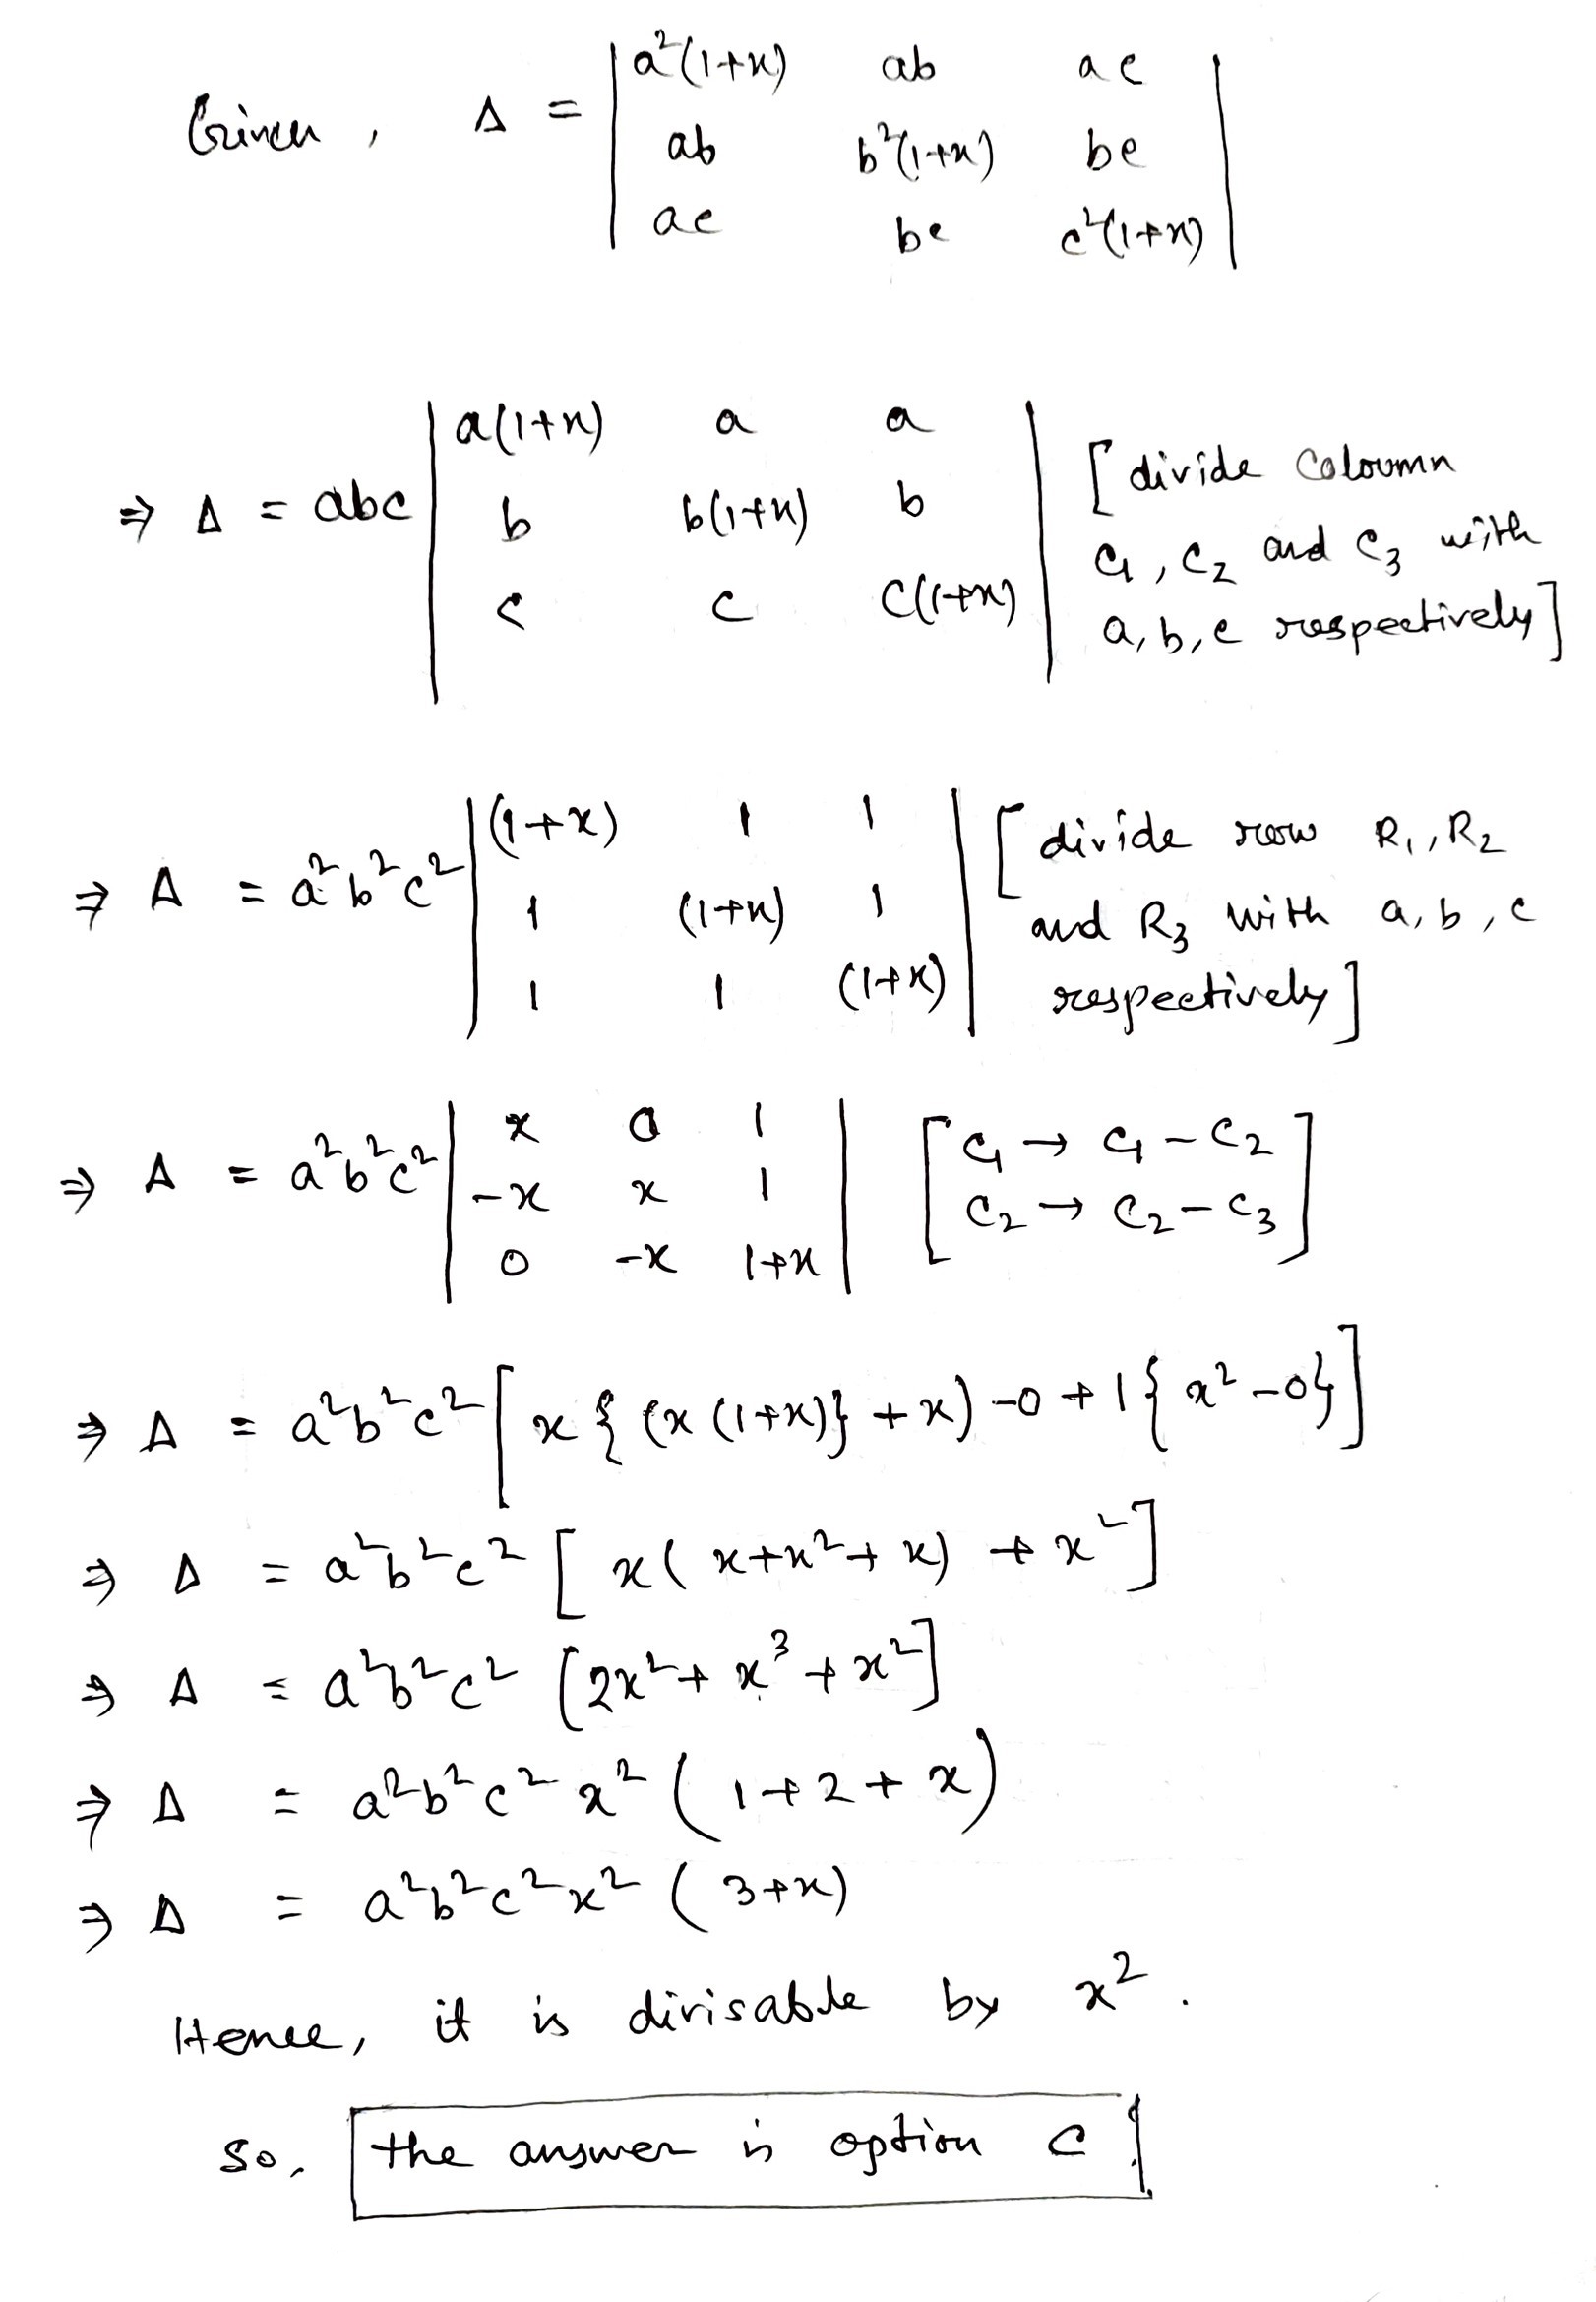 Given, Δ = | a²(1+x) ab ac |
| ab b²(1+x) bc |
| ac bc c²(1+x) |
⇒ Δ = abc | a(1+x) a a | [divide Coloumn
| b b(1+x) b | C₁, C₂ and C₃ with
| c c c(1+x) | a, b, c respectively]
⇒ Δ = a²b²c² | (1+x) 1 1 | [divide row R₁, R₂
| 1 (1+x) 1 | and R₃ with a, b, c
| 1 1 (1+x) | respectively]
⇒ Δ = a²b²c² | x 0 1 | [C₁ → C₁ - C₂
| -x x 1 | C₂ → C₂ - C₃]
| 0 -x 1+x |
⇒ Δ = a²b²c² [x{(x(1+x)}+x) -0 +1{x²-0}]
⇒ Δ = a²b²c² [x(x+x²+x) + x²]
⇒ Δ = a²b²c² [2x²+x³+x²]
⇒ Δ = a²b²c² x² (1+2+x)
⇒ Δ = a²b²c²x² (3+x)
Hence, it is divisable by x².
So, the answer is option C.